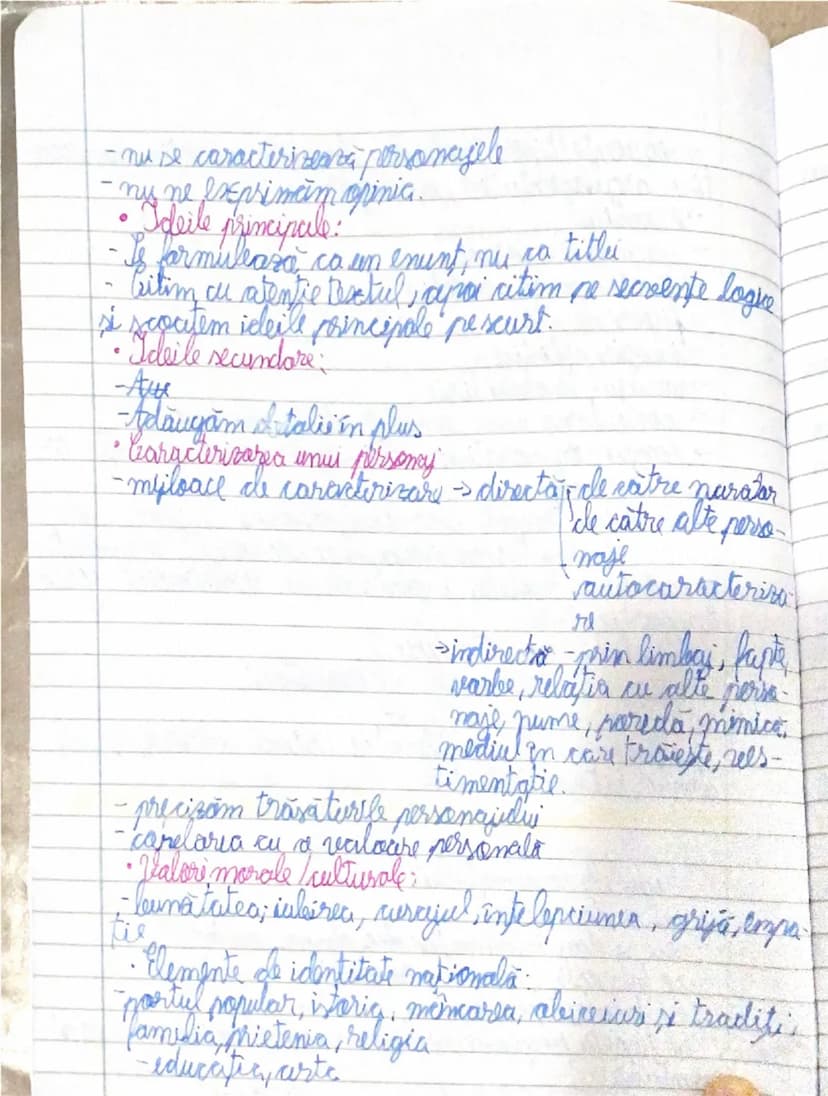 - nu se caracterizează personajele
- nu ne exprimăm opinia.
• Ideile principale:
- Se formulează ca un enunț, nu ca titlu
- Citim cu atenție textul, apoi citim pe secvențe logice
și scoatem ideile principale pe scurt.
• Ideile secundare:
-
- Adăugăm detalii în plus
• Caracterizarea unui personaj
- mijloace de caracterizare → directă - de către narator
de către alte perso-
naje
autocaracteriza-
re
→ indirectă - prin limbaj, fapte,
vorbe, relația cu alte perso-
naje, nume, porecla, mimica,
mediul în care trăiește, ves-
timentație.
- precizăm trăsăturile personajului
- corelarea cu o valoare personală
• Valori morale/culturale:
- bunătatea; iubirea, curajul, înțelepciunea, grijă, empa-
tie
• Elemente de identitate națională:
- portul popular, istoria, mâncarea, obiceiuri și tradiții,
familia, prietenia, religia
- educația, arta